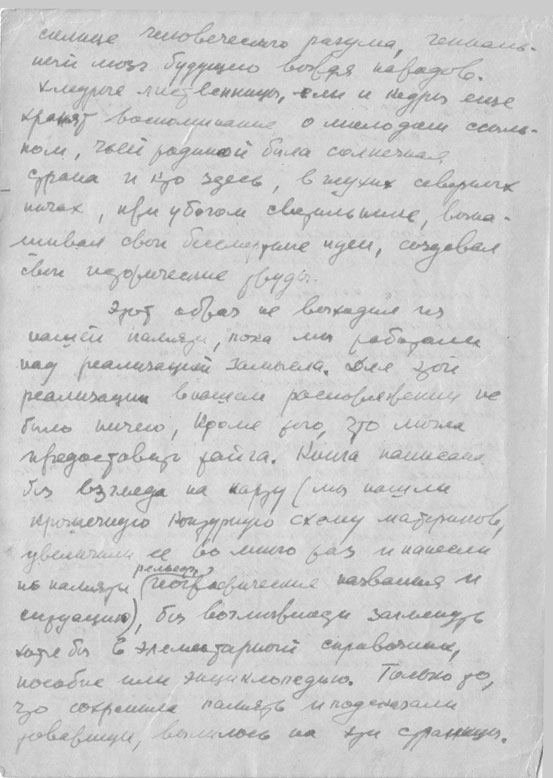 силище человеческого разума, гениаль-
ный мозг будущего вождя народов.
Хмурые лиственницы, ели и кедры еще
хранят воспоминание о молодом ссыль-
ном, чьей родиной была солнечная
страна и кто здесь, в глухих северных
ночах, при убогом светильнике, вына-
шивал свои бессмертные идеи, создавал
свои исторические труды.
Этот образ не выходил из
нашей памяти, пока мы работали
над реализацией замысла. Для этой
реализации в нашем распоряжении не
было ничего, кроме того, что могла
предоставить тайга. Книга написана
без взгляда на карту (мы нашли
крошечную контурную схему материков,
увеличили ее во много раз и нанесли
по памяти рельеф, географические названия и
ситуацию), без возможности заглянуть
хотя бы в элементарный справочник,
пособие или энциклопедию. Только то,
что сохранила память и подсказали
товарищи, вылилось на эти страницы.